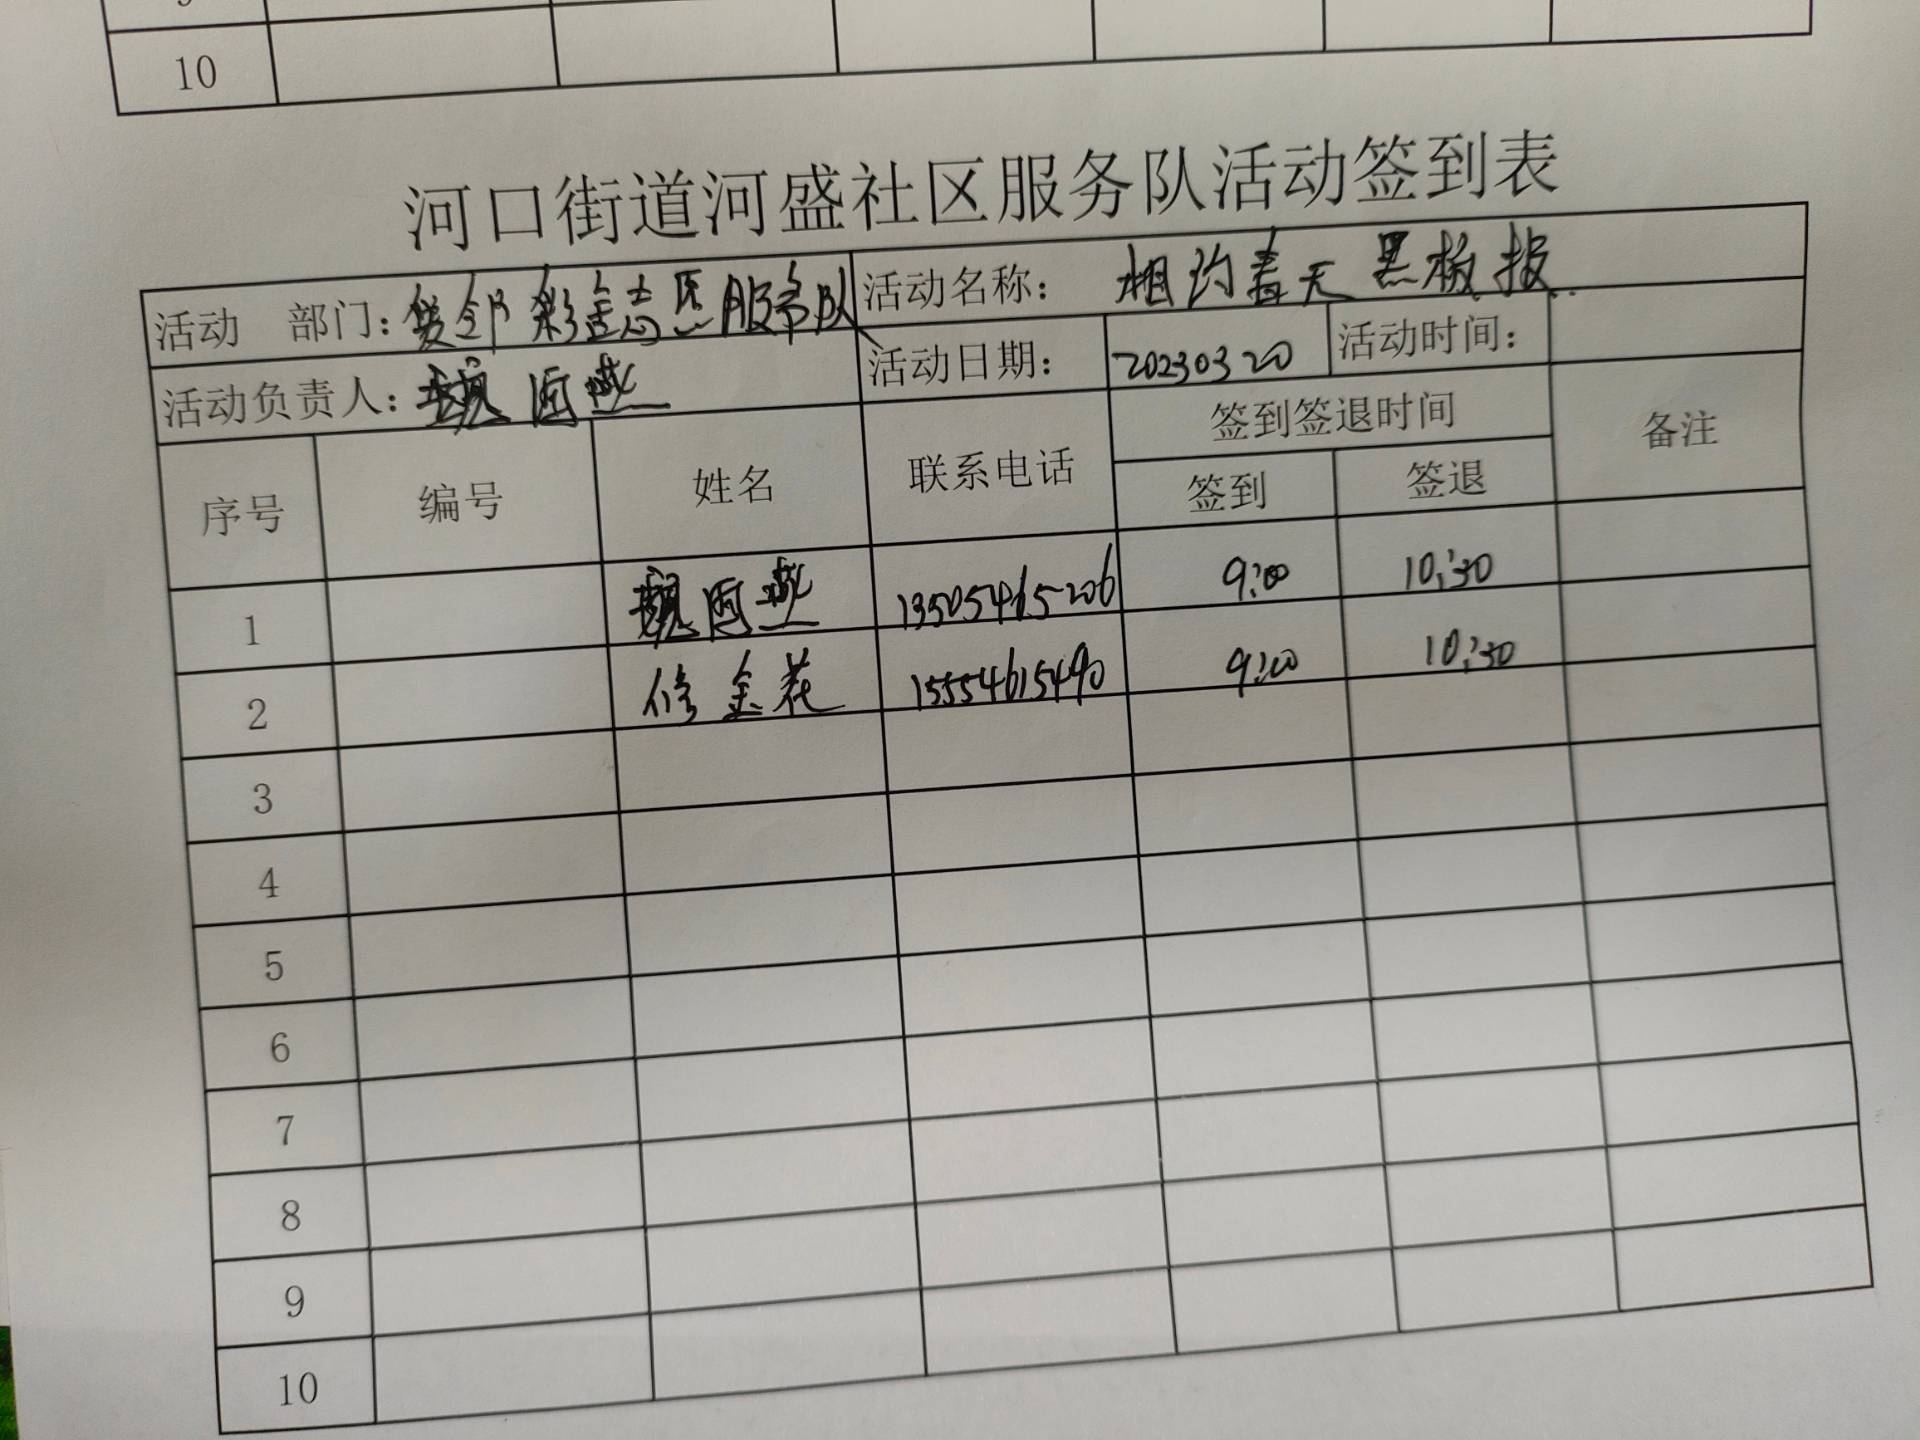 10
河口街道河盛社区服务队活动签到表
活动 部门：邻彩金志愿服务队 活动名称： 相约春天黑板报
活动负责人：魏 燕 活动日期： 20230320 活动时间：
序号 编号 姓名 联系电话 签到签退时间 备注
签到 签退
1 魏 燕 13505465206 9:00 10:30
2 修金花 15554615490 9:00 10:30
3
4
5
6
7
8
9
10